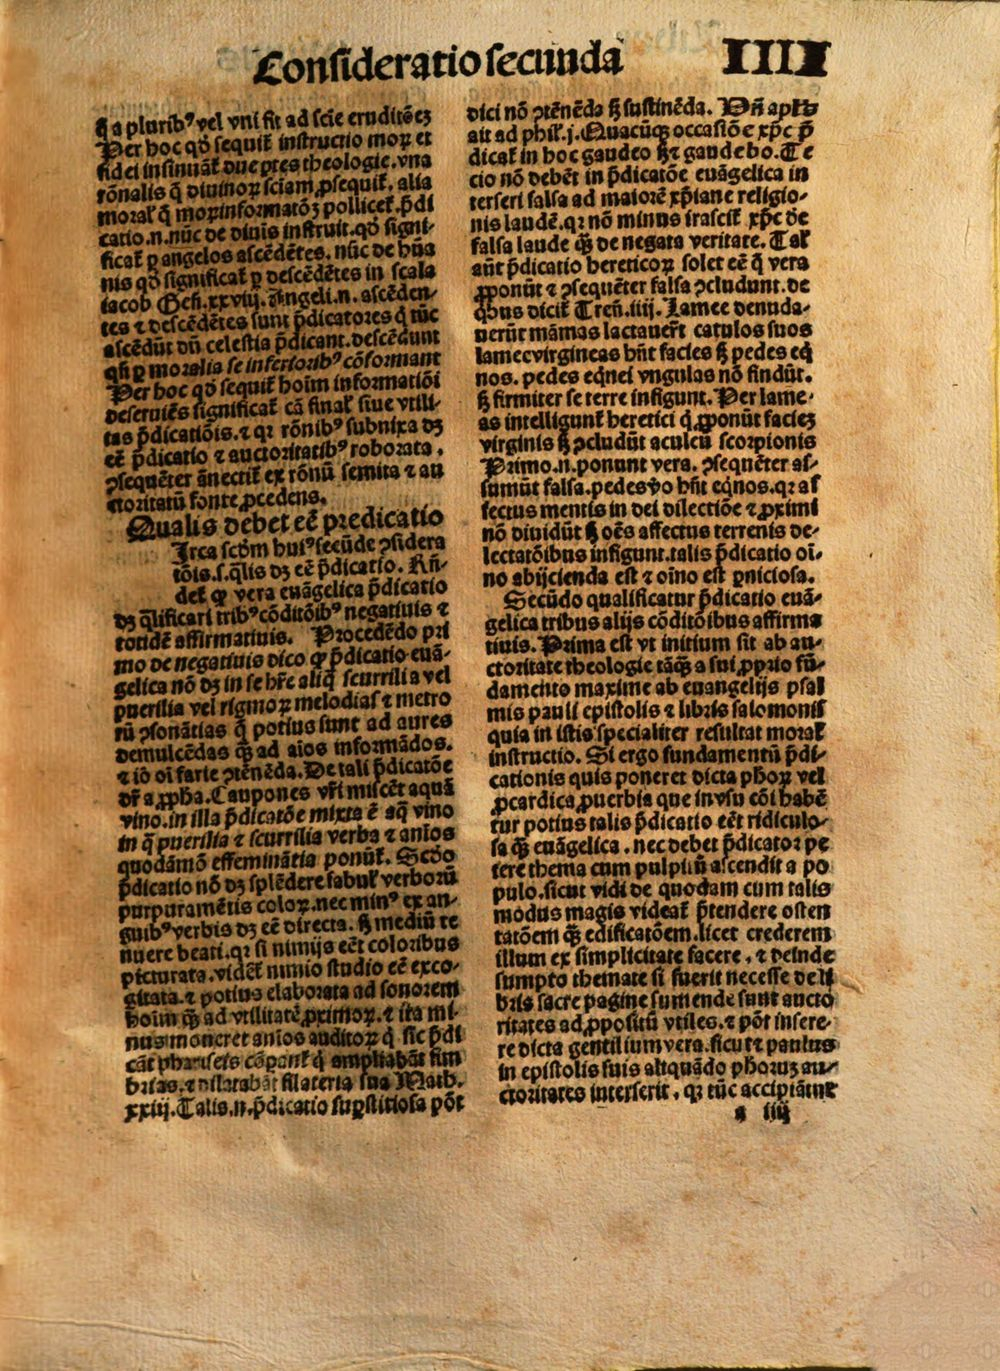 Consideratio secunda IIII
q̄ a pluribꝰ vel vni fit ad scīe eruditōeꝫ
Per hoc qd̕ sequit᷑ instructio moꝝ et
fidei insinuāt᷑ due ptes theologie. vna
rōnalis q̄ diuinoꝝ sciam ꝓsequit᷑, alia
moral̕ q̄ moꝝ informatōꝫ pollicet᷑. p̄di
catio .n. nūc de diuīs instruit. qd̕ signi-
ficat᷑ ꝑ angelos ascēdētes. nūc de hūa
nis qd̕ significat᷑ ꝑ descēdētes in scala
iacob Geñ. xxviij. Angeli .n. ascēden-
tes ⁊ descēdētes sunt p̄dicatores q̄ tūc
ascēdūt dū celestia p̄dicant. descēdunt
qn̄ ꝑ moralia se inferioribꝰ cōformant
Per hoc qd̕ sequit᷑ hoīm informatiōi
deseruiēs significat᷑ cā final̕ siue vtili-
tas p̄dicatiōis. ⁊ qꝛ rōnibꝰ subnixa dꝫ
eē p̄dicatio ⁊ auctoritatibꝰ roborata.
ꝯsequēter ānectit᷑ ex rōnū semita ⁊ au
ctoritatū fonte ꝓcedens.
Qualis debet eē predicatio
Irca scd̕m huiꝰ secūde ꝯsidera
tōis .s. q̄lis dꝫ eē p̄dicatio. Rn̄-
det᷑ ꝙ vera euāgelica p̄dicatio
dꝫ q̄lificari tribꝰ cōditōibꝰ negatiuis ⁊
totidē affirmatiuis. Procedēdo pri
mo de negatiuis dico ꝙ p̄dicatio euā-
gelica nō dꝫ in se hr̄e aliq̄ scurrilia vel
puerilia vel rigmoꝝ melodias ⁊ metro
rū ꝯsonātias q̄ potius sunt ad aures
demulcēdas q̄ꝫ ad aīos informādos.
⁊ iō oī farie ꝯtēnēda. De tali p̄dicatōe
dr̄ a ꝓpha. Caupones vr̄i miscēt aquā
vino. in illa p̄dicatōe mixta ē aq̄ vino
in q̄ puerilia ⁊ scurrilia verba ⁊ anīos
quodāmō effeminātia ponūt᷑. Scd̕o
p̄dicatio nō dꝫ splēdere fabul̕ verborū
purpuramētis coloꝝ. nec minꝰ ex an-
guibꝰ verbis dꝫ eē directa. sꝫ mediū te
nuere beati. qꝛ si nimijs eēt coloribus
picturata. vidēt᷑ nimio studio eē exco-
gitata. ⁊ potius elaborata ad fonorem
hoīm q̄ꝫ ad vtilitatē ꝓximoꝝ. ⁊ ita mi-
nus moneret anīos auditoꝝ q̄ sic p̄di
cāt phariseis cōpant᷑ q̄ ampliabāt fim
brias. ⁊ dilatabāt filateria sua Math.
xxiij. Talis .n. p̄dicatio suꝑstitiosa pōt
dici nō ꝯtēnēda sꝫ sustinēda. Vn̄ aplūs
ait ad phil̕. j. Quacūqꝫ occasiōe xp̄c p̄
dicat᷑ in hoc gaudeo sꝫ ⁊ gaudebo. Te
cio nō debēt in p̄dicatōe euāgelica in
terseri falsa ad maiorē xp̄iane religio-
nis laudē. qꝛ nō minus irascit᷑ xp̄c de
falsa laude q̄ꝫ de negata veritate. Tal̕
aūt p̄dicatio hereticoꝝ solet eē q̄ vera
ꝓponūt ⁊ ꝯsequēter falsa ꝯcludunt. de
qͥbus dicit᷑ Treñ. iiij. Lamee denuda-
uerūt māmas lactauer̄t catulos suos
lamee virgineas hn̄t facies sꝫ pedes eq̄
nos. pedes eq̄nei vngulas nō findūt.
sꝫ firmiter se terre infigunt. Per lame-
as intelligunt᷑ heretici q̄ ꝓponūt facieꝫ
virginis sꝫ ꝯcludūt aculeū scorpionis
Primo .n. ponunt vera. ꝯsequēter as-
sumūt falsa. pedes v̄o hn̄t eq̄nos. qꝛ af
fectus mentis in dei dilectiōe ⁊ ꝓximi
nō diuidūt sꝫ oēs affectus terrenis de-
lectatōibus infigunt. talis p̄dicatio oī-
no abijcienda est ⁊ oīno est ꝑniciosa.
Secūdo qualificatur p̄dicatio euā-
gelica tribus alijs cōditōibus affirma
tiuis. Prima est vt initium sit ab au-
ctoritate theologie tāq̄ꝫ a sui ꝓprio fū-
damento maxime ab euangelijs psal
mis pauli epistolis ⁊ libris salomonis
quia in istis specialiter resultat moral̕
instructio. Si ergo fundamentū p̄di-
cationis quis poneret dicta phoꝝ vel
ꝓcardica ꝓuerbia que in vsu cōi habē
tur potius talis p̄dicatio eēt ridiculo-
sa q̄ꝫ euāgelica. nec debet p̄dicator pe
tere thema cum pulpitū ascendit a po
pulo. sicut vidi de quodam cum talis
modus magis videat᷑ p̄tendere osten
tatōem q̄ꝫ edificatōem. licet crederem
illum ex simplicitate facere. ⁊ deinde
sumpto themate si fuerit necesse de li
bris sacre pagine sumende sunt aucto
ritates ad ꝓpositū vtiles. ⁊ pōt insere-
re dicta gentilium vera. sicut ⁊ paulus
in epistolis suis aliquādo phoruꝫ au-
ctoritates interserit. qꝛ tūc accipiātur
a iiij